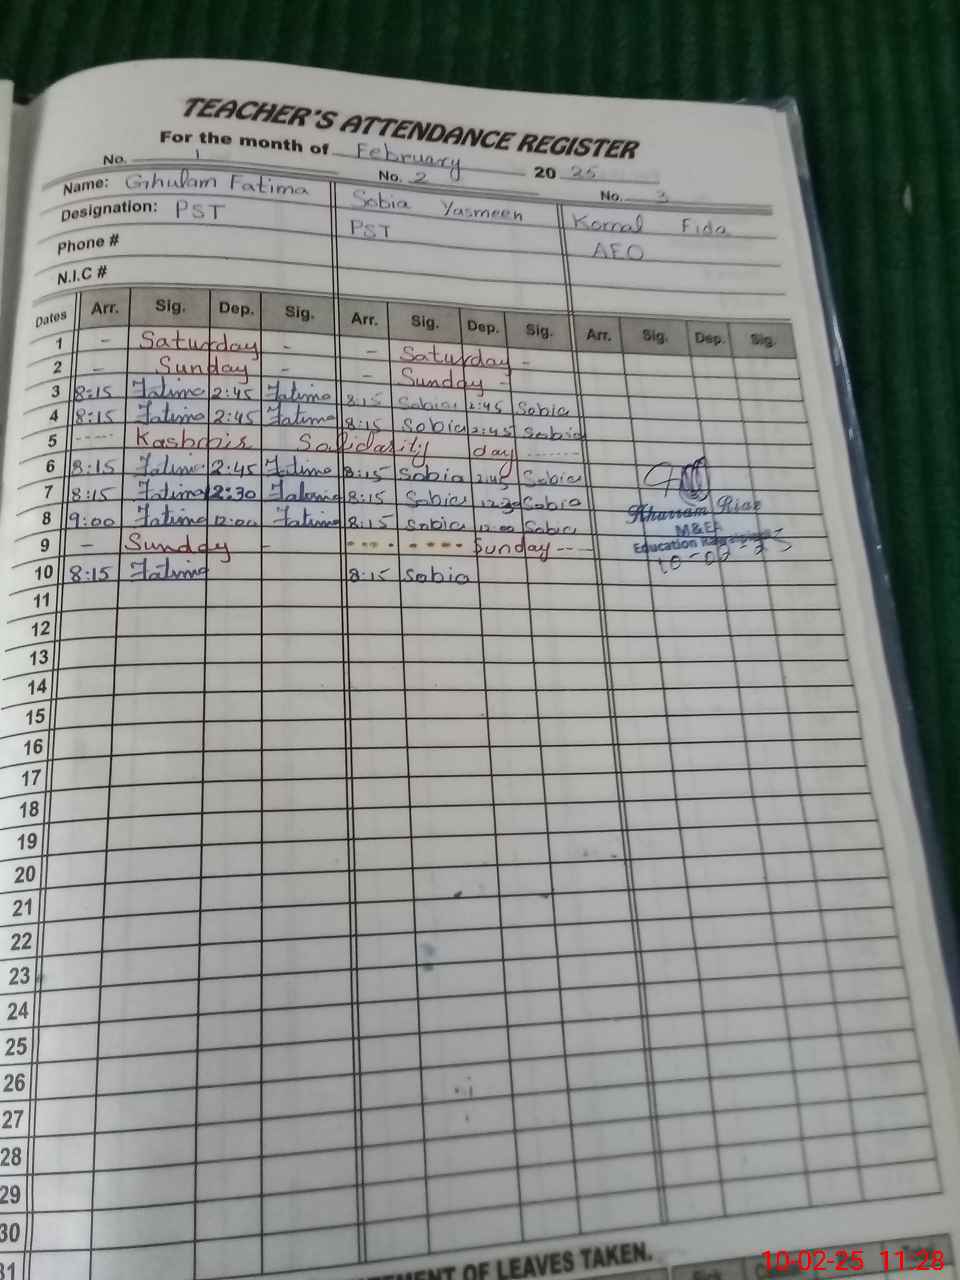 TEACHER'S ATTENDANCE REGISTER
For the month of February 20 25
No. 1 No. 2 No. 3
Name: Ghulam Fatima Sobia Yasmeen Komal Fida
Designation: PST PST AEO
Phone #
N.I.C #
Dates Arr. Sig. Dep. Sig. Arr. Sig. Dep. Sig. Arr. Sig. Dep. Sig.
1 - Saturday - - Saturday -
2 - Sunday - - Sunday -
3 8:15 Fatima 2:45 Fatima 8:15 Sobia 2:45 Sobia
4 8:15 Fatima 2:45 Fatima 8:15 Sobia 2:45 Sobia
5 ----- Kashmir Solidarity day -------
6 8:15 Fatima 2:45 Fatima 8:15 Sobia 2:45 Sobia
7 8:15 Fatima 12:30 Fatima 8:15 Sobia 12:30 Sobia
8 9:00 Fatima 12:00 Fatima 8:15 Sobia 12:00 Sobia
9 - Sunday - Sunday ---
Khurram Riaz
M&EA
Education
10 8:15 Fatima 8:15 Sobia
11
12
13
14
15
16
17
18
19
20
21
22
23
24
25
26
27
28
29
30
31
OF LEAVES TAKEN.
10-02-25 11:28